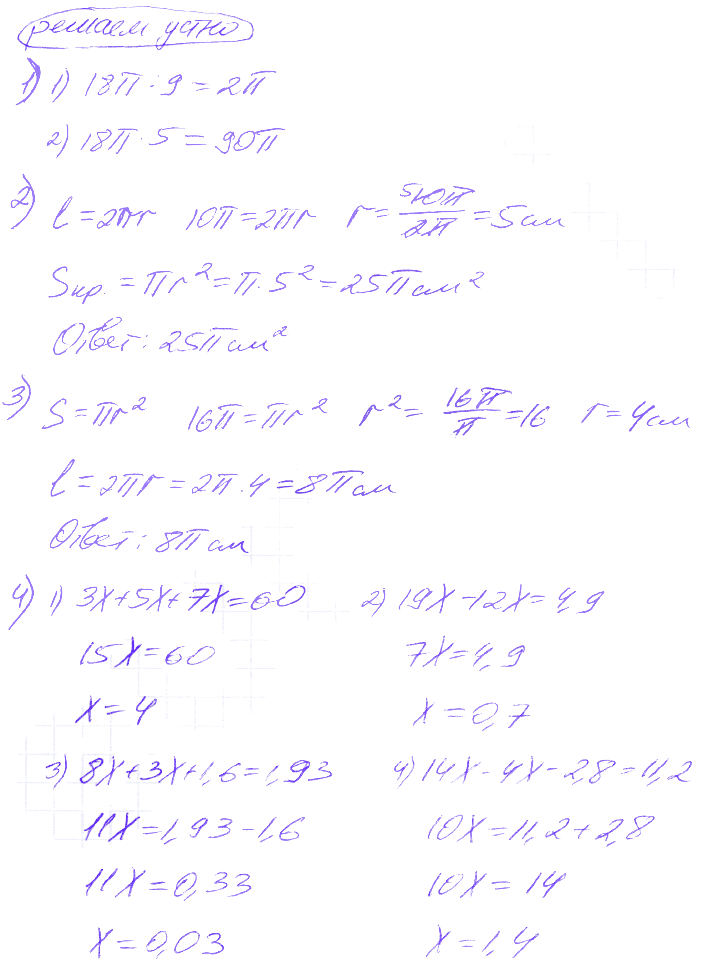 решаем устно
1) 1) 18π : 9 = 2π
2) 18π · 5 = 90π
2) l = 2πr 10π = 2πr r = 5 10π / 2π = 5 см
Sкр. = πr² = π · 5² = 25π см²
Ответ: 25π см²
3) S = πr² 16π = πr² r² = 16π / π = 16 r = 4 см
l = 2πr = 2π · 4 = 8π см
Ответ: 8π см
4) 1) 3x + 5x + 7x = 60 2) 19x - 12x = 4,9
15x = 60 7x = 4,9
x = 4 x = 0,7
3) 8x + 3x + 1,6 = 1,93 4) 14x - 4x - 2,8 = 11,2
11x = 1,93 - 1,6 10x = 11,2 + 2,8
11x = 0,33 10x = 14
x = 0,03 x = 1,4